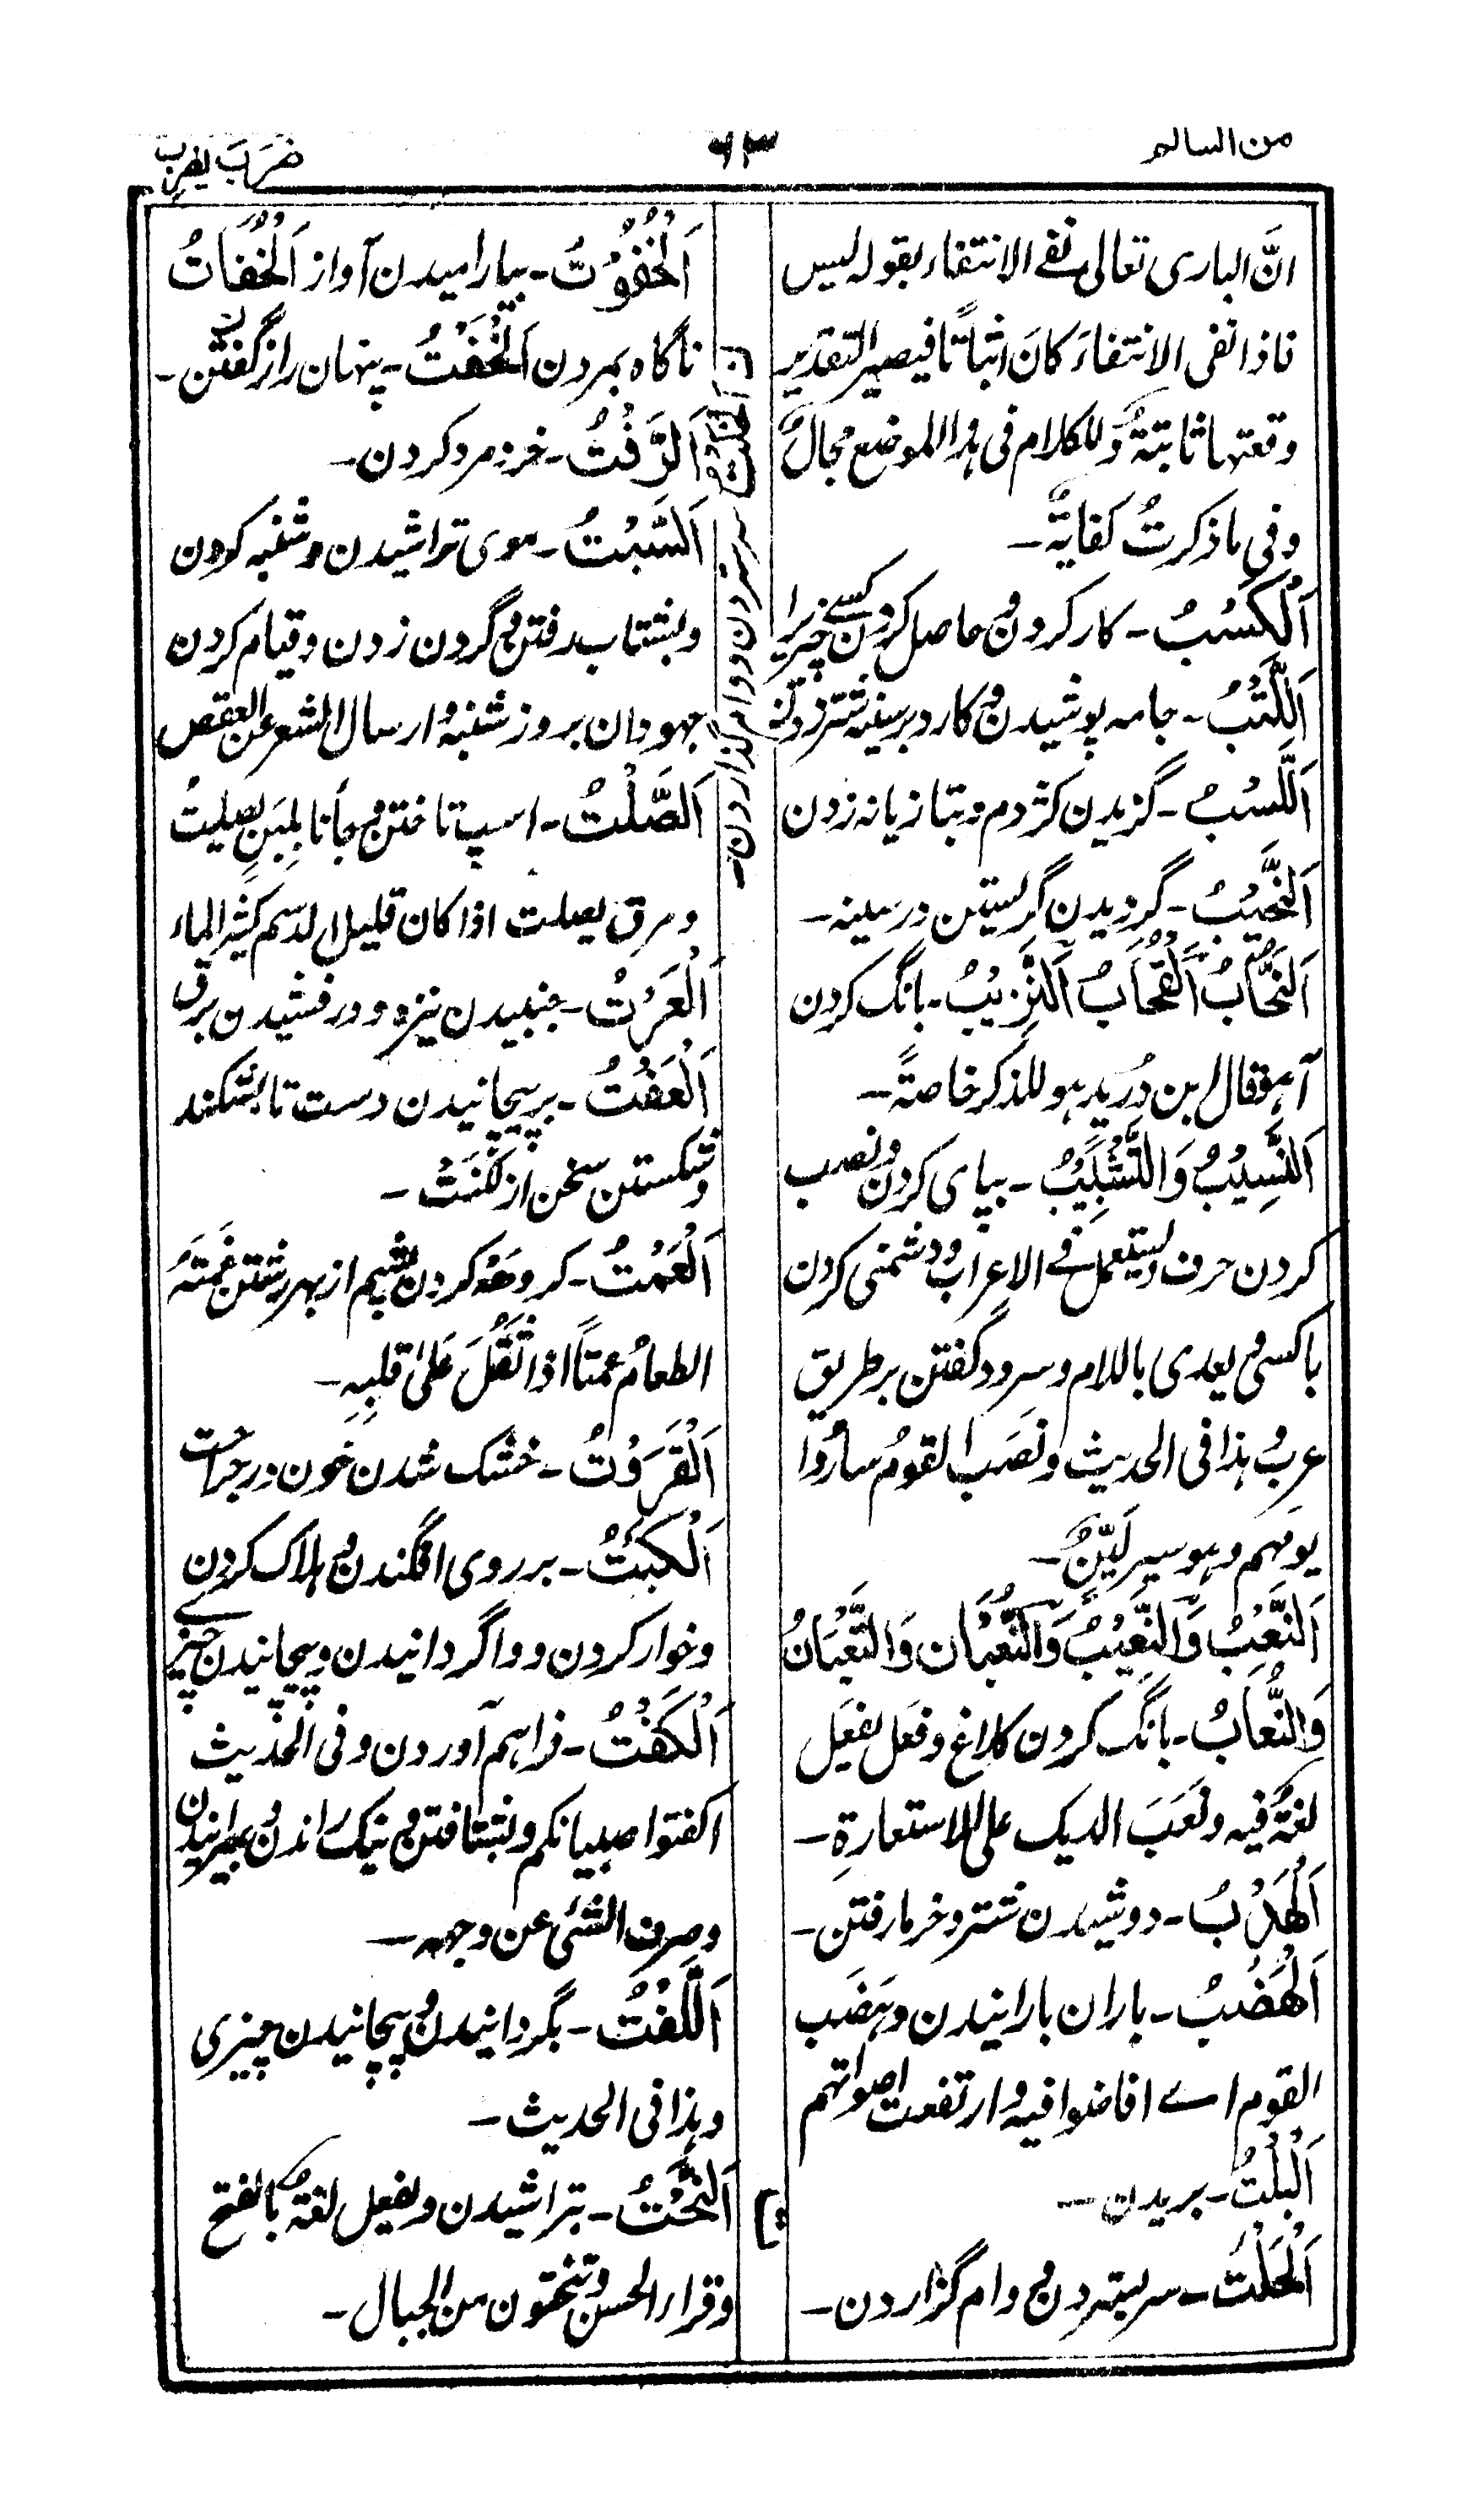 من السالم
۶۳
ضَرَبَ یضرب
انَّ الباری تعالی نفی الانتفاء بقولہ لیس
فاذا نفی الانتفاءَ کانَ اثباتًا فیصیر التقدیر
وقعتہا ثابتةٌ وللکلام فی ہذا الموضع مجالٌ
وفی ما ذکرتُ کفایةٌ ـ
اَلْکَسْبُ ـ کار کردن و حاصل کردن کسے چیزیرا
اَللَّتْبُ ـ جامہ پوشیدن و کارد برسینہ شتر زدن
اَللَّسْبُ ـ گزیدن کژدم و بتازیانہ زدن
اَلنَّحِیْبُ ـ گردیدن گریستن در سینہ ـ
اَلنُّحَابُ اَلْقُحَابُ اَلنَّزِیْبُ ـ بانگ کردن
آہو قال ابن دُرید ہو للذکر خاصةً ـ
اَلنَّسِیْبُ وَالتَّشْبِیْبُ ـ بپای کردن و نصب
کردن حرف و یستعمل فی الاعراب و دشمنی کردن
باکسی و یعدی باللام و سرود گفتن برطریق
عرب و ہذا فی الحدیث و نَصَبَ القومُ ساروا
یومہم وہو سیر لیّنٌ ـ
اَلنَّعْبُ وَالنَّعِیْبُ وَالتَّعْبَان وَالنَّعَبَانُ
وَالنُّعَابُ ـ بانگ کردن کلاغ و فعَل یفعَل
لغةٌ فیہ و نَعَبَ الدیک علی الاستعارةِ ـ
اَلْهَدْبُ ـ دوشیدن شتر و خرما رفتن ـ
اَلْهَضْبُ ـ باران بارانیدن و ہَضَب
القوم اے افاضوا فیہ و ارتفعت اصواتہم
ت
اَلْبَلْتُ ـ بریدن ـ
اَلْحَلْتُ ـ سر ستردن و وام گزاردن ـ
اَلْخُفُوْتُ ـ بیارامیدن آواز اَلْخُفَاتُ
ناگاہ بمردن اَلْخَفْتُ ـ پنہان راز گفتن ـ
اَلزَّفْتُ ـ خرد مرد کردن ـ
اَلسَّبْتُ ـ موی تراشیدن و شنبہ کردن
و بشتاب رفتن و گردن زدن و قیام کردن
جہودان بروز شنبہ و ارسال الشعر عن العقص
اَلصَّلْتُ ـ اسپ تاختن و جأنا بِلبَنٍ یصلت
و مرق یصلت اذا کان قلیل الدسم کثیر الماء
اَلْعَرْتُ ـ جنبیدن نیزہ و درفشیدن برق
اَلْعَفْتُ ـ برپیچانیدن دست تا بشکند
و شکستن سخن از لُکْنَتْ ـ
اَلْعَمْتُ ـ کروھہ کردن پشم از بہر رشتن غمتہٗ
الطعامُ عمتًا اذا ثَقُلَ عَلیٰ قلبِہٖ ـ
اَلْقَرْتُ ـ خشک شدن خون در جراحت
اَلْکَبْتُ ـ برروی افگندن و ہلاک کردن
و خوار کردن و واگردانیدن و پیچانیدن چیزے
اَلْکَفْتُ ـ فراہم آوردن و فی الحدیث
اکفتوا صبیانکم و بشتافتن و نیک راندن و میرانیدن
و صرف الشئی عن وجہہ ـ
اَللَّفْتُ ـ بگردانیدن و پیچانیدن چیزی
و ہذا فی الحدیث ـ
اَلنَّحْتُ ـ بتراشیدن و یفعل لغةٌ بالفتح
و قراء الحسن و تنحتون من الجبال ـ